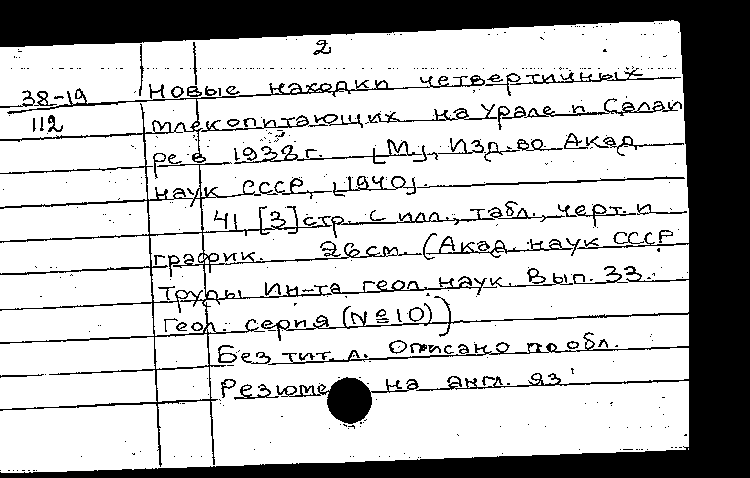 2
38-19 Новые находки четвертичных
112 млекопитающих на Урале и Салаи
ре в 1938 г. [М], Изд-во Акад.
наук СССР, [1940].
41, [3] стр. с илл., табл., черт. и
график. 26 см. (Акад. наук СССР
Труды Ин-та геол. наук. Вып. 33.
Геол. серия (№ 10))
Без тит. л. Описано по обл.
Резюме на англ. яз.